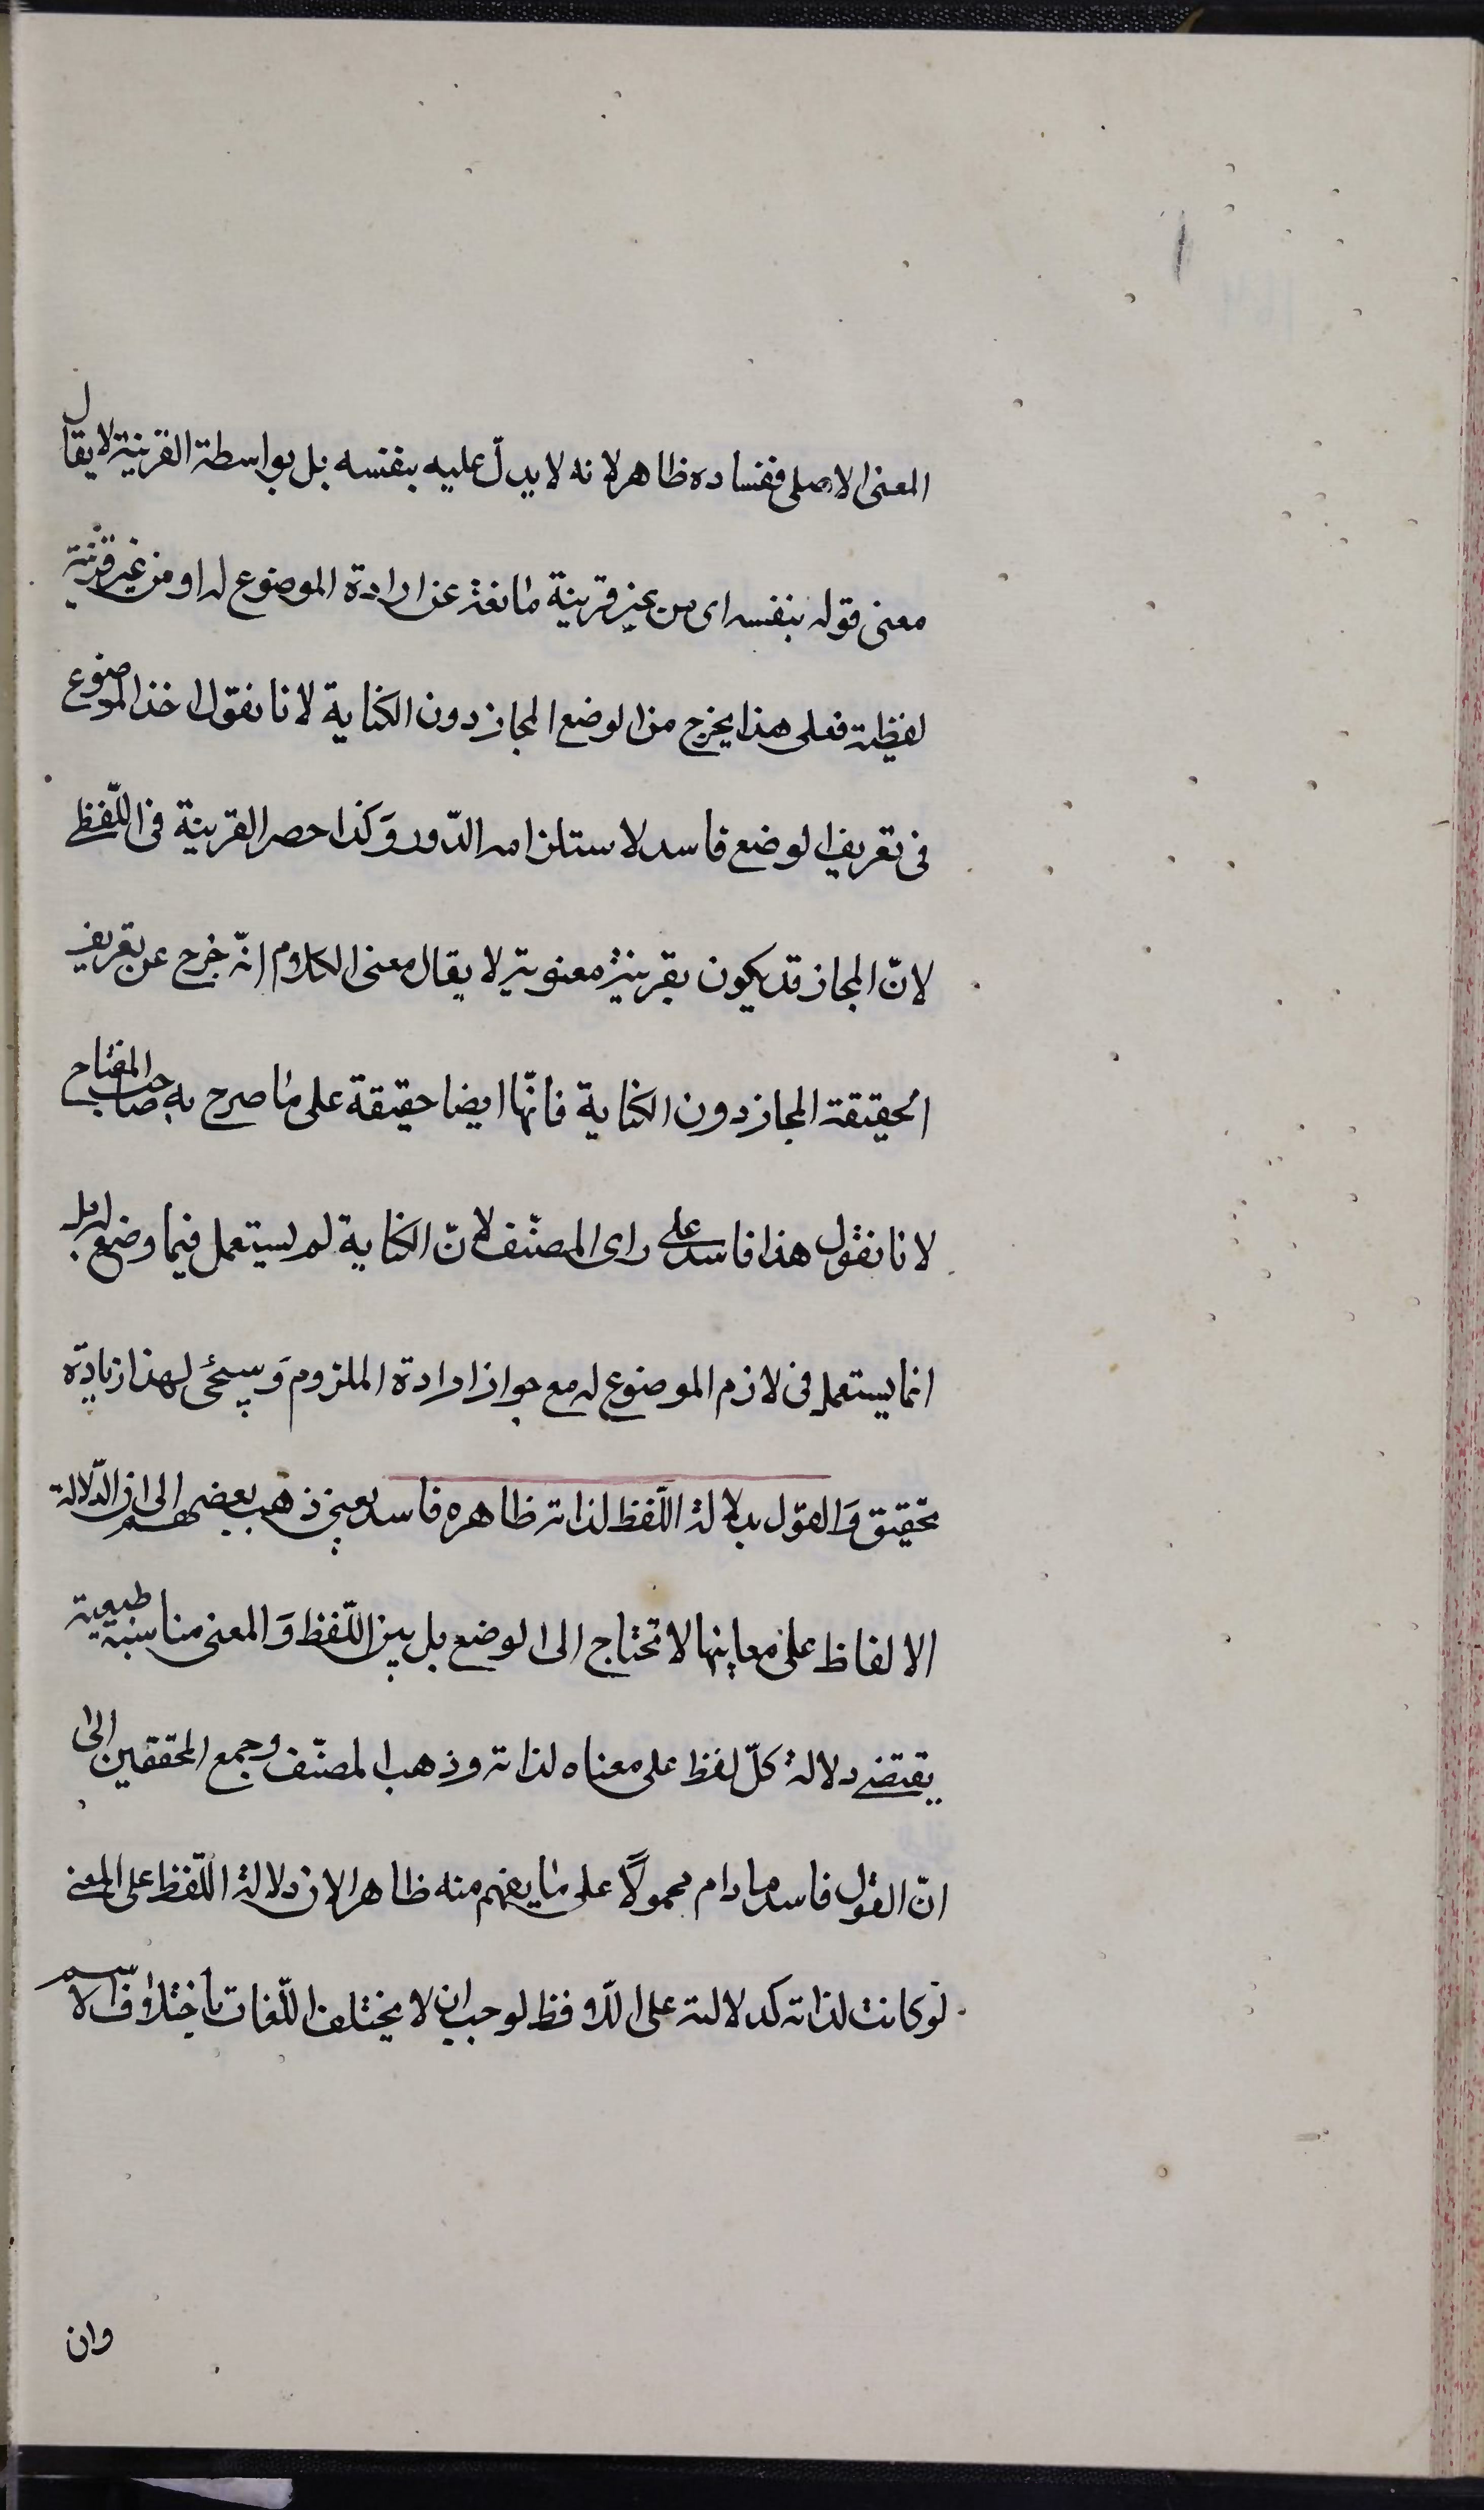 المعنى الاصلى ففساده ظاهر لانه لا يدلّ عليه بنفسه بل بواسطة القرينة لا يقال
معنى قوله بنفسه اى من غير قرينة مانعة عن ارادة الموضوع له او من غير قرينة
لفظية فعلى هذا يخرج من الوضع المجاز دون الكناية لانا نقول اخذ الموضوع
فى تعريف الوضع فاسد لاستلزامه الدّور وَكذا حصر القرينة فى اللّفظى
لانّ المجاز قد يكون بقرينة معنوية لا يقال معنى الكلام انّه خرج عن تعريف
الحقيقة المجاز دون الكناية فانّها ايضا حقيقة على ما صرح به صاحب المفتاح
لانا نقول هذا فاسد على راى المصنّف لانّ الكناية لم يستعمل فيما وضع له بل
انما يستعمل فى لازم الموضوع له مع جواز ارادة الملزوم وَسيجئ لهذا زيادة
تحقيق وَالقول بدلالة اللّفظ لذاته ظاهره فاسد يعنى ذهب بعضهم الى ان الدّلالة
الالفاظ على معانيها لا تحتاج الى الوضع بل بين اللّفظ وَالمعنى مناسبة طبيعية
يقتضى دلالة كلّ لفظ على معناه لذاته وذهب المصنّف وجمع المحققين الى
انّ القول فاسد ما دام محمولًا على ما يفهم منه ظاهرا لان دلالة اللّفظ على المعنى
لو كانت لذاته كدلالته على اللّافظ لوجب ان لا يختلف اللّغات باختلاف الامم
وان